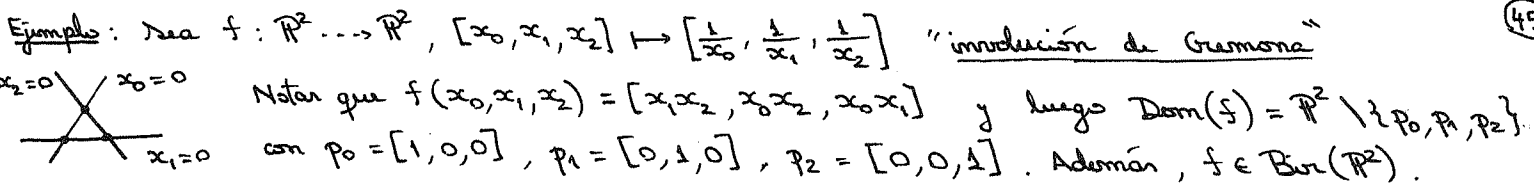 Ejemplo: Sea f : ℙ² ⇢ ℙ², [x₀, x₁, x₂] ↦ [1/x₀, 1/x₁, 1/x₂] "involución de Cremona"
45
x₂=0 x₀=0 Notar que f(x₀,x₁,x₂) = [x₁x₂, x₀x₂, x₀x₁] y luego Dom(f) = ℙ² \ {p₀, p₁, p₂},
x₁=0 con p₀ = [1,0,0], p₁ = [0,1,0], p₂ = [0,0,1]. Además, f ∈ Bir(ℙ²).